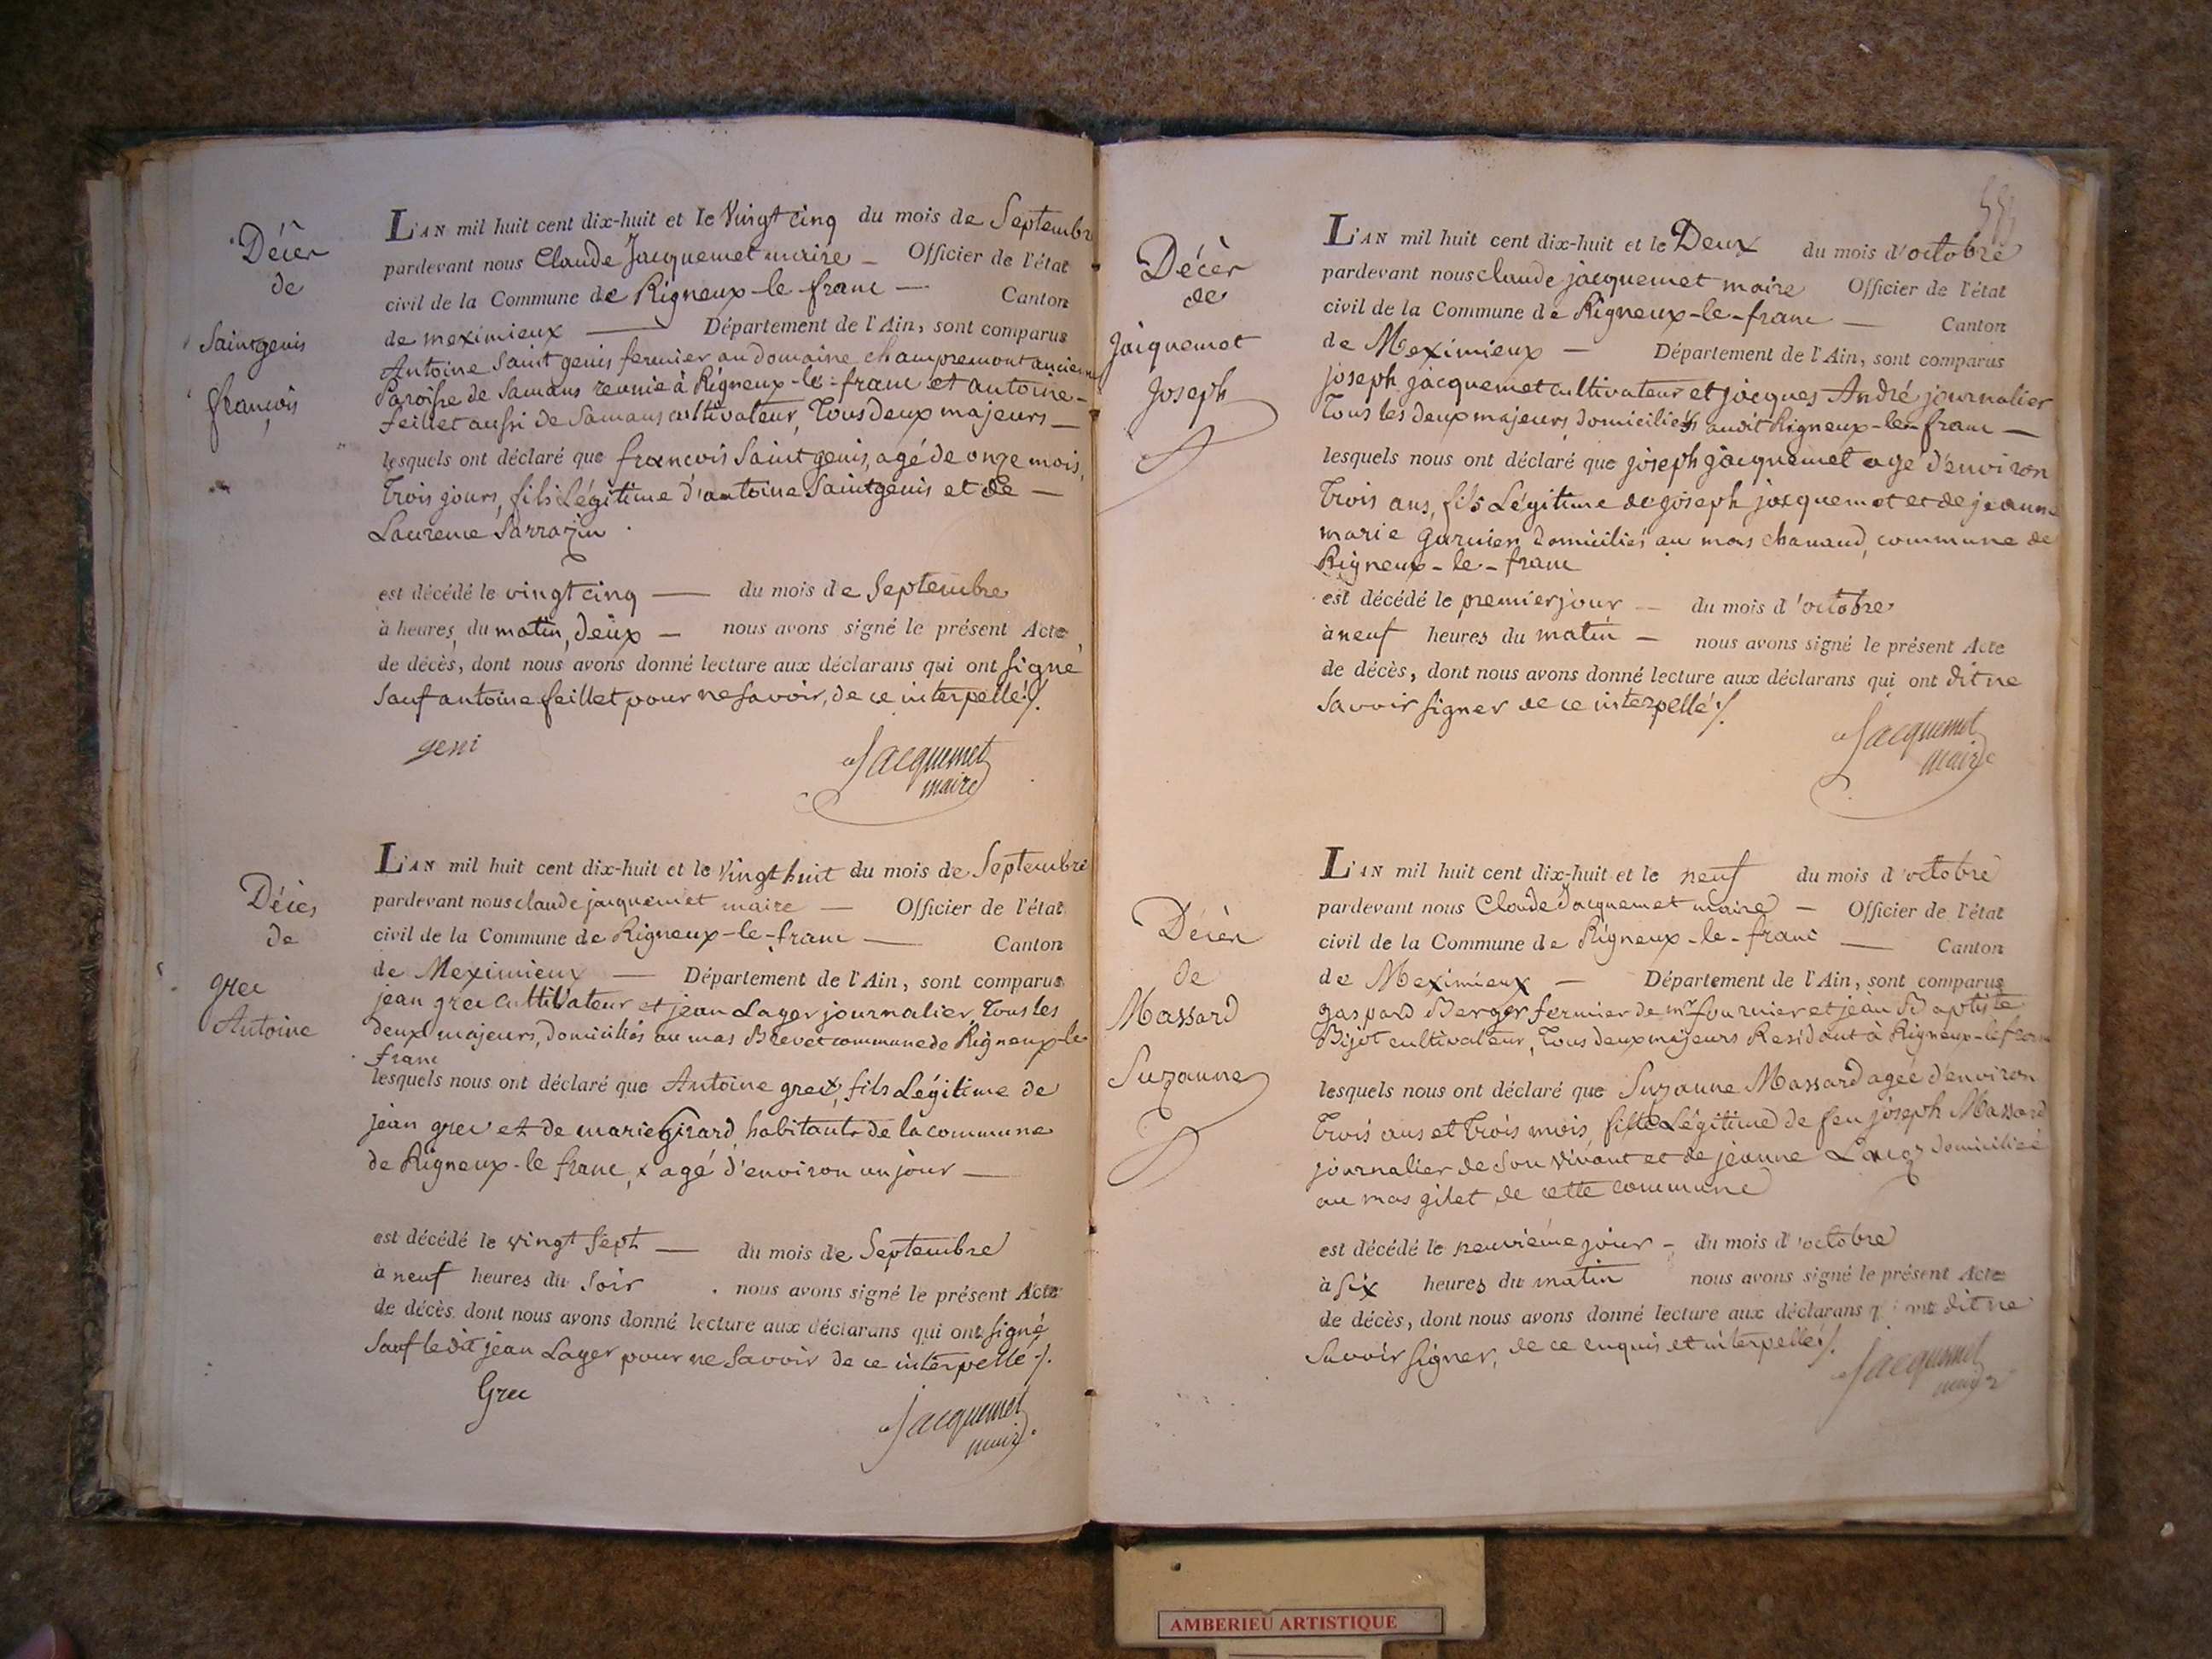 Décès
de
Saintgenis
françois
L'AN mil huit cent dix-huit et le Vingt cinq du mois de Septembre
pardevant nous Claude Jacquemet maire - Officier de l'état
civil de la Commune de Rigneux-le-franc - Canton
de meximieux - Département de l'Ain, sont comparus
Antoine Saint genis fermier au domaine champremont ancienne
Paroisse de Samans reunie à Rigneux-le-franc et antoine-
feillet aussi de Samans cultivateur, Tous deux majeurs -
lesquels ont déclaré que francois Saint genis, agé de onze mois,
trois jours, fils Légitime d'antoine Saintgenis et de -
Laurence Sarrazin.
est décédé le vingt cinq - du mois de Septembre
à heures, du matin, deux - nous avons signé le présent Acte
de décès, dont nous avons donné lecture aux déclarans qui ont signé
Sauf antoine feillet pour ne savoir, de ce interpellé ./.
geni
Jacquemet
maire
Décès
de
grec
Antoine
L'AN mil huit cent dix-huit et le Vingt huit du mois de Septembre
pardevant nous claude jacquemet maire - Officier de l'état
civil de la Commune de Rigneux-le-franc - Canton
de Meximieux - Département de l'Ain, sont comparus
jean grec cultivateur et jean Layer journalier Tous les
deux majeurs, domiciliés au mas Brevet commune de Rigneux-le
franc
lesquels nous ont déclaré que Antoine grec, fils Légitime de
jean grec et de marie girard, habitants de la commune
de Rigneux-le franc, x agé d'environ un jour -
est décédé le vingt sept - du mois de Septembre
à neuf heures du soir . nous avons signé le présent Acte
de décès, dont nous avons donné lecture aux déclarans qui ont signé
Sauf le dit jean Layer pour ne Savoir de ce interpellé ./.
Grec
Jacquemet
maire
Décès
de
Jacquemet
Joseph
L'AN mil huit cent dix-huit et le Deux du mois d'octobre
pardevant nous claude jacquemet maire Officier de l'état
civil de la Commune de Rigneux-le-franc - Canton
de Meximieux - Département de l'Ain, sont comparus
joseph jacquemet cultivateur et jacques André journalier
Tous les deux majeurs domiciliés audit Rigneux-le-franc -
lesquels nous ont déclaré que joseph jacquemet agé d'environ
Trois ans, fils Légitime de joseph jacquemet et de jeanne
marie Garnier domiciliés au mas chanaud, commune de
Rigneux-le-franc
est décédé le premier jour - du mois d'octobre
à neuf heures du matin - nous avons signé le présent Acte
de décès, dont nous avons donné lecture aux déclarans qui ont dit ne
Savoir signer de ce interpellé ./.
Jacquemet
maire
Décès
de
Massard
Suzanne
L'AN mil huit cent dix-huit et le neuf du mois d'octobre
pardevant nous Claude Jacquemet maire - Officier de l'état
civil de la Commune de Rigneux-le-franc - Canton
de Meximieux - Département de l'Ain, sont comparus
gaspard Berger fermier de mr fournier et jean Baptiste
Bijot cultivateur, Tous deux majeurs Residant à Rigneux-le franc
lesquels nous ont déclaré que Suzanne Massard agée d'environ
Trois ans et Trois mois, fille Légitime de feu joseph Massard
journalier de Son vivant et de jeanne domiciliée
au mas gilet de cette commune
est décédé le neuvième jour - du mois d'octobre
à Six heures du matin nous avons signé le présent Acte
de décès, dont nous avons donné lecture aux déclarans qui ont dit ne
Savoir signer, de ce enquis et interpellés ./.
Jacquemet
maire
AMBERIEU ARTISTIQUE